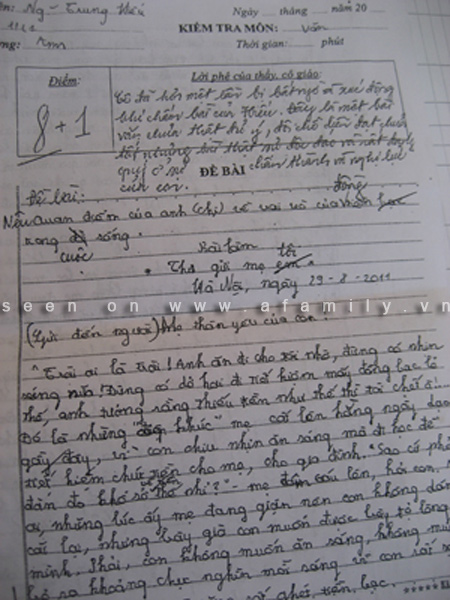 ên: Ng - Trung Hiếu Ngày tháng năm 20
11 KIỂM TRA MÔN: Văn
ng: Ams Thời gian: phút
Điểm: Lời phê của thầy, cô giáo:
8 + 1 Cô đã hơn một lần bị bất ngờ và xúc động
khi chấm bài của Hiếu. Đây là một bài
văn chưa thật đủ ý, đôi chỗ diễn đạt chưa
tốt nhưng
quý ở sự chân thành và nghị lực
của con.
ĐỀ BÀI
Đề bài: đồng
Nêu quan điểm của anh (chị) về vai trò của
trong sống.
cuộc Bài làm
Thư gửi mẹ
Hà Nội, ngày 29-8-2011
seen on www.afamily.vn
(Gửi đến người) Mẹ thân yêu của con!
"Trời ai là trời! Anh ăn đi cho tôi nhờ, đừng có nhịn
sáng nữa! Đừng có dở hơi đi tiết kiệm mấy đồng bạc lẻ
thế, anh tưởng sáng thiếu tiền như thế thì tôi chết à!...
Đó là những "điệp khúc" mẹ ca hằng ngày, dạo
gần đây, vì con nhịn ăn sáng mà đi học để
tiết kiệm chút tiền cho mẹ, cho gia đình. "Sao có phá
đám đó khó thế nhỉ?" - mẹ lên, hỏi con.
ai, những lúc ấy mẹ đang giận nên con không dám
cãi lại, nhưng bây giờ con muốn được bày tỏ lòng
mình. Phải, con không muốn ăn sáng, không muốn
bỏ ra khoảng chục nghìn mỗi sáng vì con